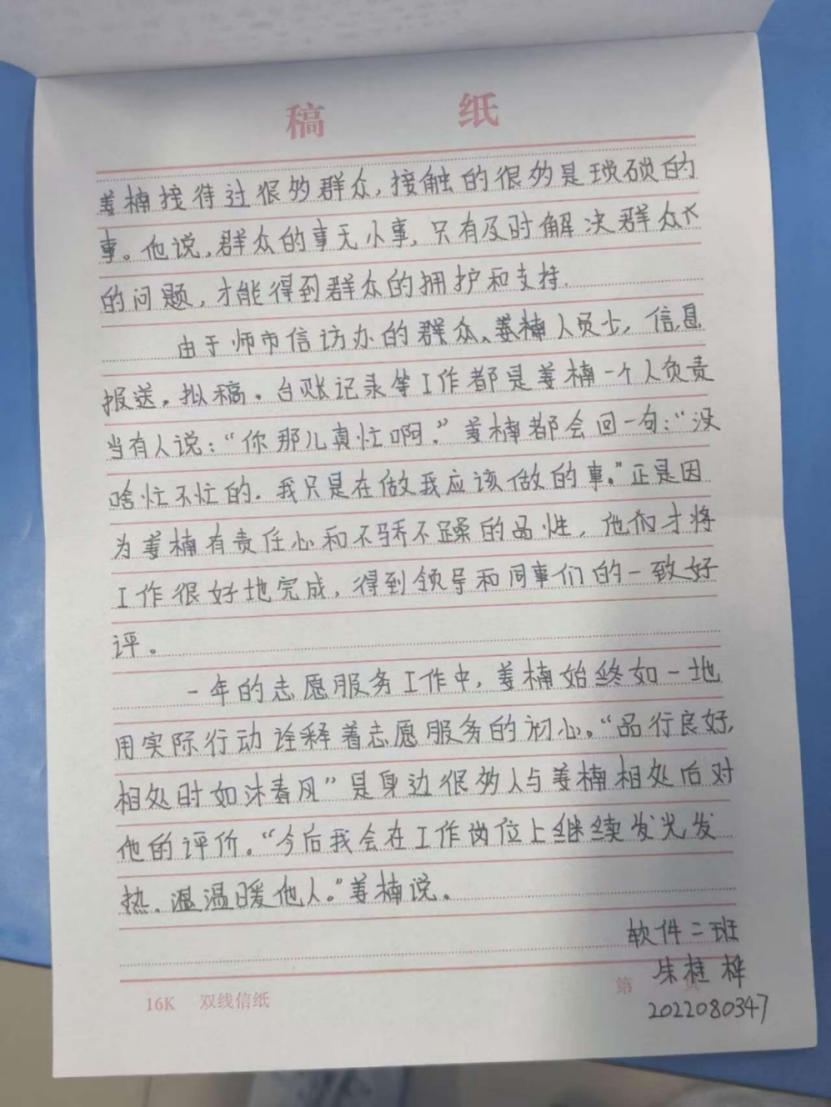 稿 纸
姜楠接待过很多群众,接触的很多是琐碎的
事。他说,群众的事无小事,只有及时解决群众
的问题,才能得到群众的拥护和支持.
由于师市信访办的群众、姜楠人员少,信息
报送,拟稿,台账记录等工作都是姜楠一个人负责
当有人说:“你那儿真忙啊.”姜楠都会回一句:“没
啥忙不忙的.我只是在做我应该做的事.”正是因
为姜楠有责任心和不骄不躁的品性,他们才将
工作很好地完成,得到领导和同事们的一致好
评。
一年的志愿服务工作中,姜楠始终如一地
用实际行动诠释着志愿服务的初心。“品行良好,
相处时如沐春风”是身边很多人与姜楠相处后对
他的评价。“今后我会在工作岗位上继续发光发
热.温温暖他人。”姜楠说.
软件二班
朱桂桦
第 页
2022080347
16K 双线信纸